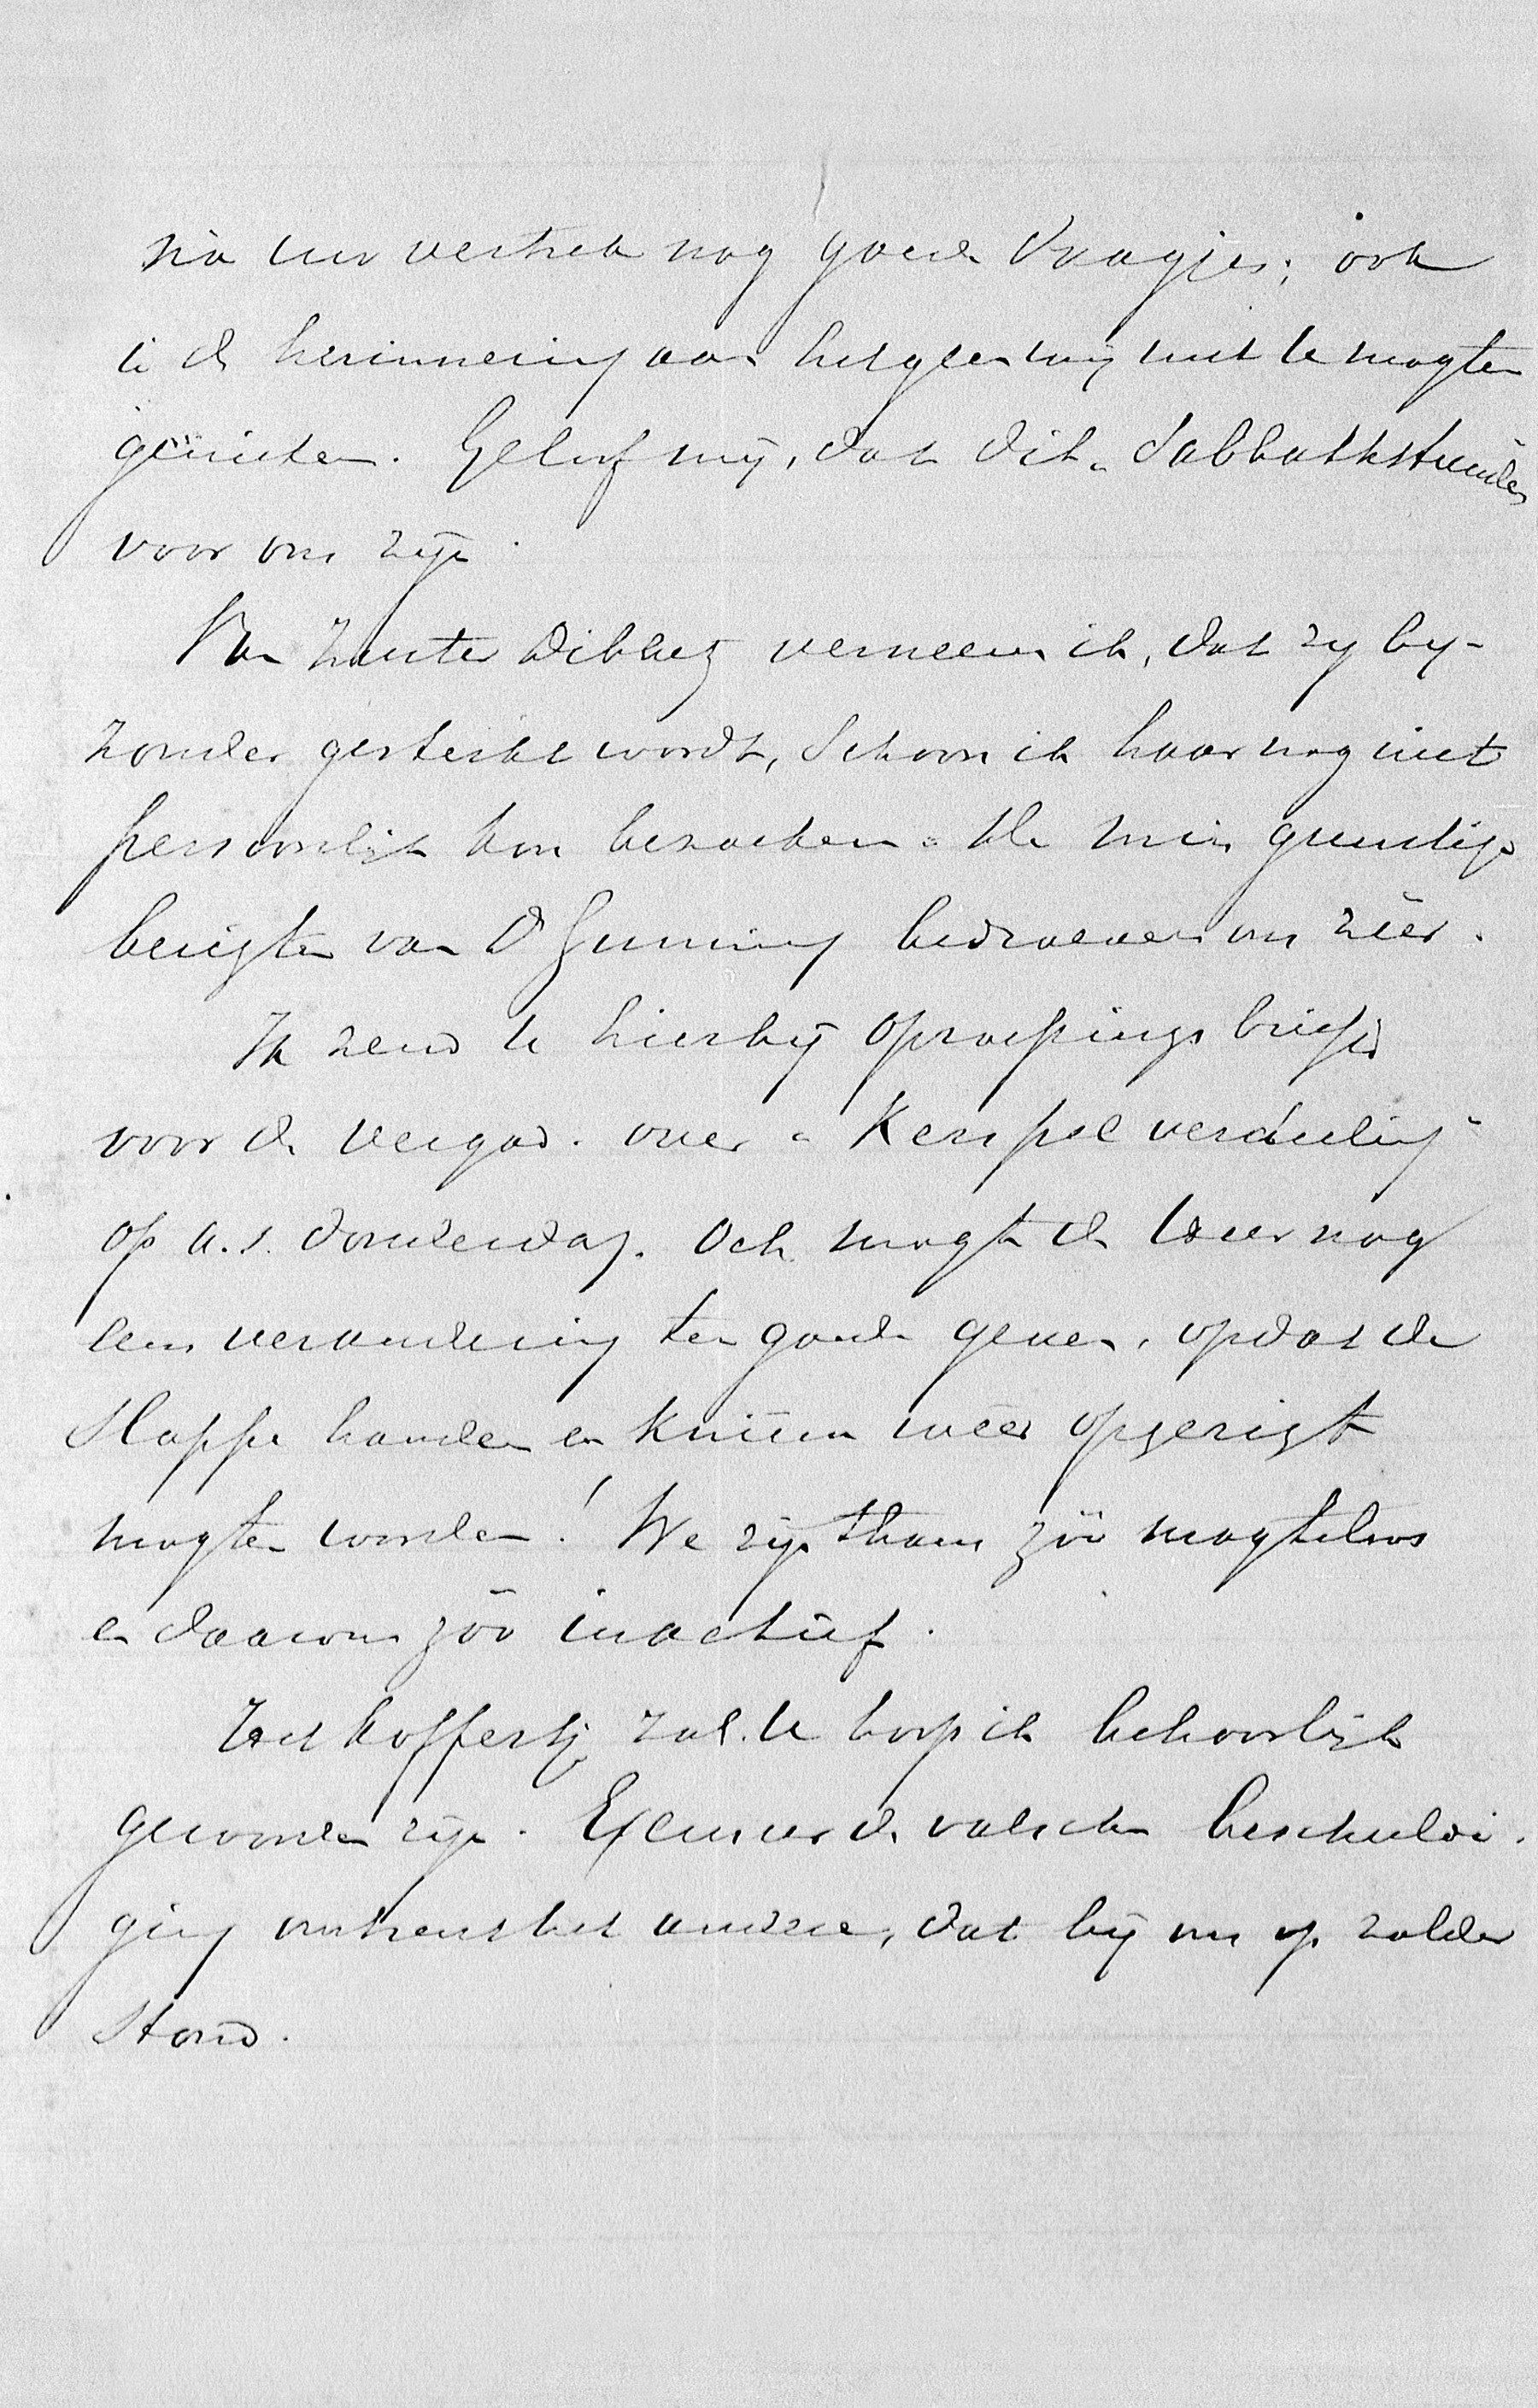 na uw vertrek nog goede vraagjes; ook
in de herinnering aan hetgeen wij met U mogten
genieten. Geloof mij, dat dit "Sabbathstunden
voor ons zijn.
Van Zuster Dibbetz verneem ik, dat zij bij-
zonder gesterkt wordt, schoon ik haar nog niet
persoonlijk kon bezoeken. De min gunstige
berigten van Ds Gunning bedroeven ons zéér.
Ik zend U hierbij oproepings briefje
voor de vergad. over "Kerspel verdeeling"
op a.s. donderdag. Och mogt de Heer nog
een verandering ten goede geven, opdat de
slappe handen en knieën weêr opgerigt
mogten worden! We zijn thans zóó magteloos
en daarom zóó inactief.
Het koffertje zal U hoop ik behoorlijk
geworden zijn. Excuseer de valsche beschuldi-
ging omtrent het andere, dat bij ons op zolder
stond.